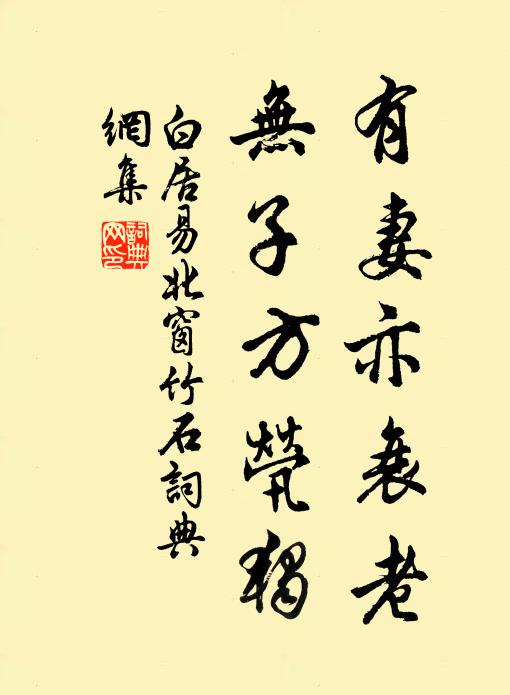 有妻亦衰老
無子方煢獨
白居易北窗竹石詞典
網集
詞典
网印